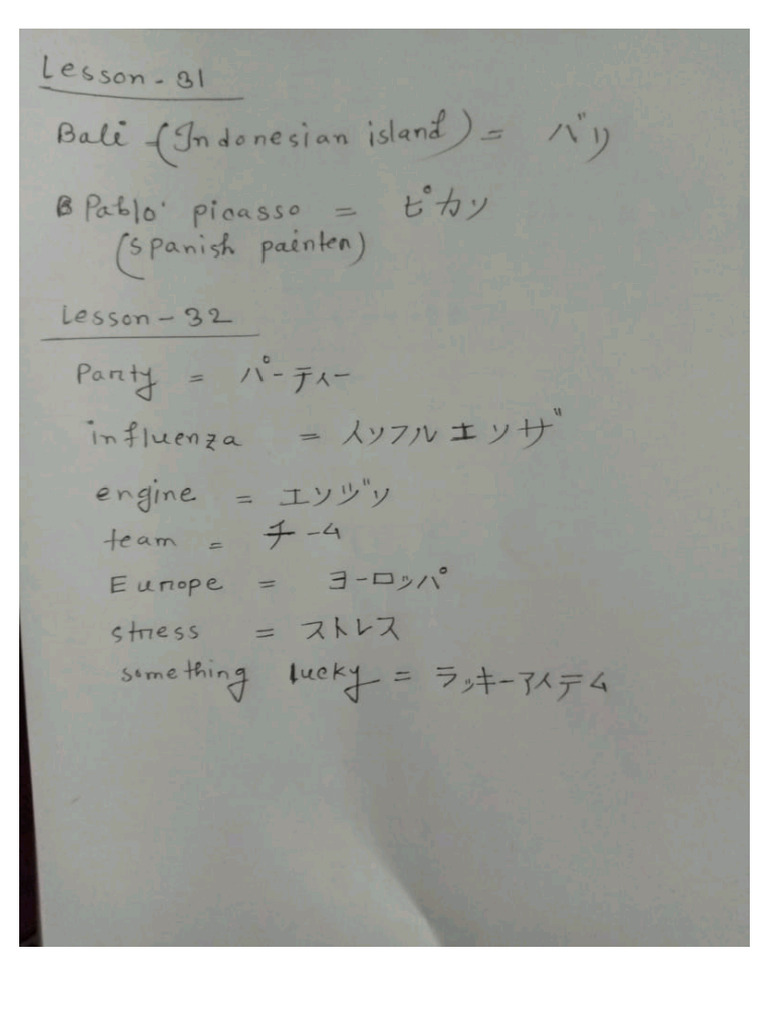 Lesson - 31
Bali (Indonesian island) = バリ
Pablo picasso = ピカソ
(Spanish painter)
Lesson - 32
Party = パーティー
influenza = インフルエンザ
engine = エンジン
team = チーム
Europe = ヨーロッパ
stress = ストレス
something lucky = ラッキーアイテム